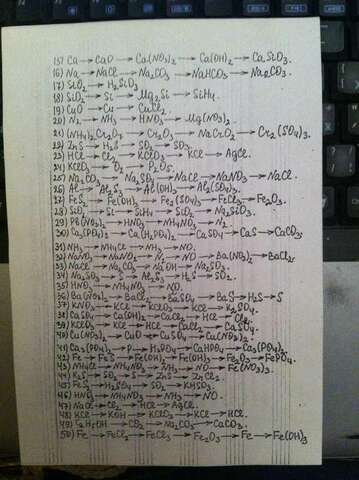 15) Ca → CaO → Ca(NO3)2 → Ca(OH)2 → CaSiO3.
16) Na → NaCl → Na2CO3 → NaHCO3 → Na2CO3.
17) SiO2 → H2SiO3
18) SiO2 → Si → Mg2Si → SiH4.
19) CuO → Cu → CuCl2.
20) N2 → NH3 → HNO3 → Mg(NO3)2.
21) (NH4)2Cr2O7 → Cr2O3 → NaCrO2 → Cr2(SO4)3.
22) ZnS → H2S → SO2 → SO3.
23) HCl → Cl2 → KClO3 → KCl → AgCl.
24) KClO3 → O2 → P2O5
25) Na2CO3 → Na2SO4 → NaCl → NaNO3 → NaCl.
26) Al → Al2S3 → Al(OH)3 → Al2(SO4)3.
27) FeS2 → Fe(OH)3 → Fe2(SO4)3 → FeCl3 → Fe2O3.
28) SiO2 → Si → SiH4 → SiO2 → Na2SiO3.
29) Pb(NO3)2 → HNO3 → NH4NO3 → N2
30) Ca3(PO4)2 → Ca(H2PO4)2 → CaSO4 → CaS → CaCO3.
31) NH3 → NH4Cl → NH3 → NO.
32) NaNO3 → NaNO2 → N2 → NO → Ba(NO3)2 → BaCl2
33) NaCl → Na2CO3 → NaOH → Na2SO3.
34) Na2SO3 → S → Al2S3 → H2S → SO2.
35) HNO3 → NH4NO3 → NO.
36) Ba(NO3)2 → BaCl2 → BaSO4 → BaS → H2S → S
37) KNO3 → KCl → KClO3 → KCl → K2SO4.
38) CaSO4 → Ca(OH)2 → CaCl2 → HCl → Cl2.
39) KClO3 → KCl → HCl → CaCl2 → CaSO4.
40) Cu(NO3)2 → CuO → CuSO4 → Cu(NO3)2.
41) Ca3(PO4)2 → P → H3PO4 → CaHPO4 → Ca3(PO4)2.
42) Fe → FeS → Fe(OH)2 → Fe(OH)3 → Fe2O3 → FePO4.
43) NH4Cl → NH4NO3 → NH3 → NO → Fe(NO3)3.
44) K2S → SO2 → S → ZnS → ZnCl2.
45) FeS2 → H2SO4 → SO2 → KHSO3.
46) HNO3 → NH4NO3 → NH3 → NO.
47) NaCl → Cl2 → HCl → AgCl.
48) KCl → KOH → KClO3 → KCl → HCl.
49) C2H5OH → CO2 → Na2CO3 → CaCO3.
50) Fe → FeCl2 → FeCl3 → Fe2O3 → Fe → Fe(OH)3